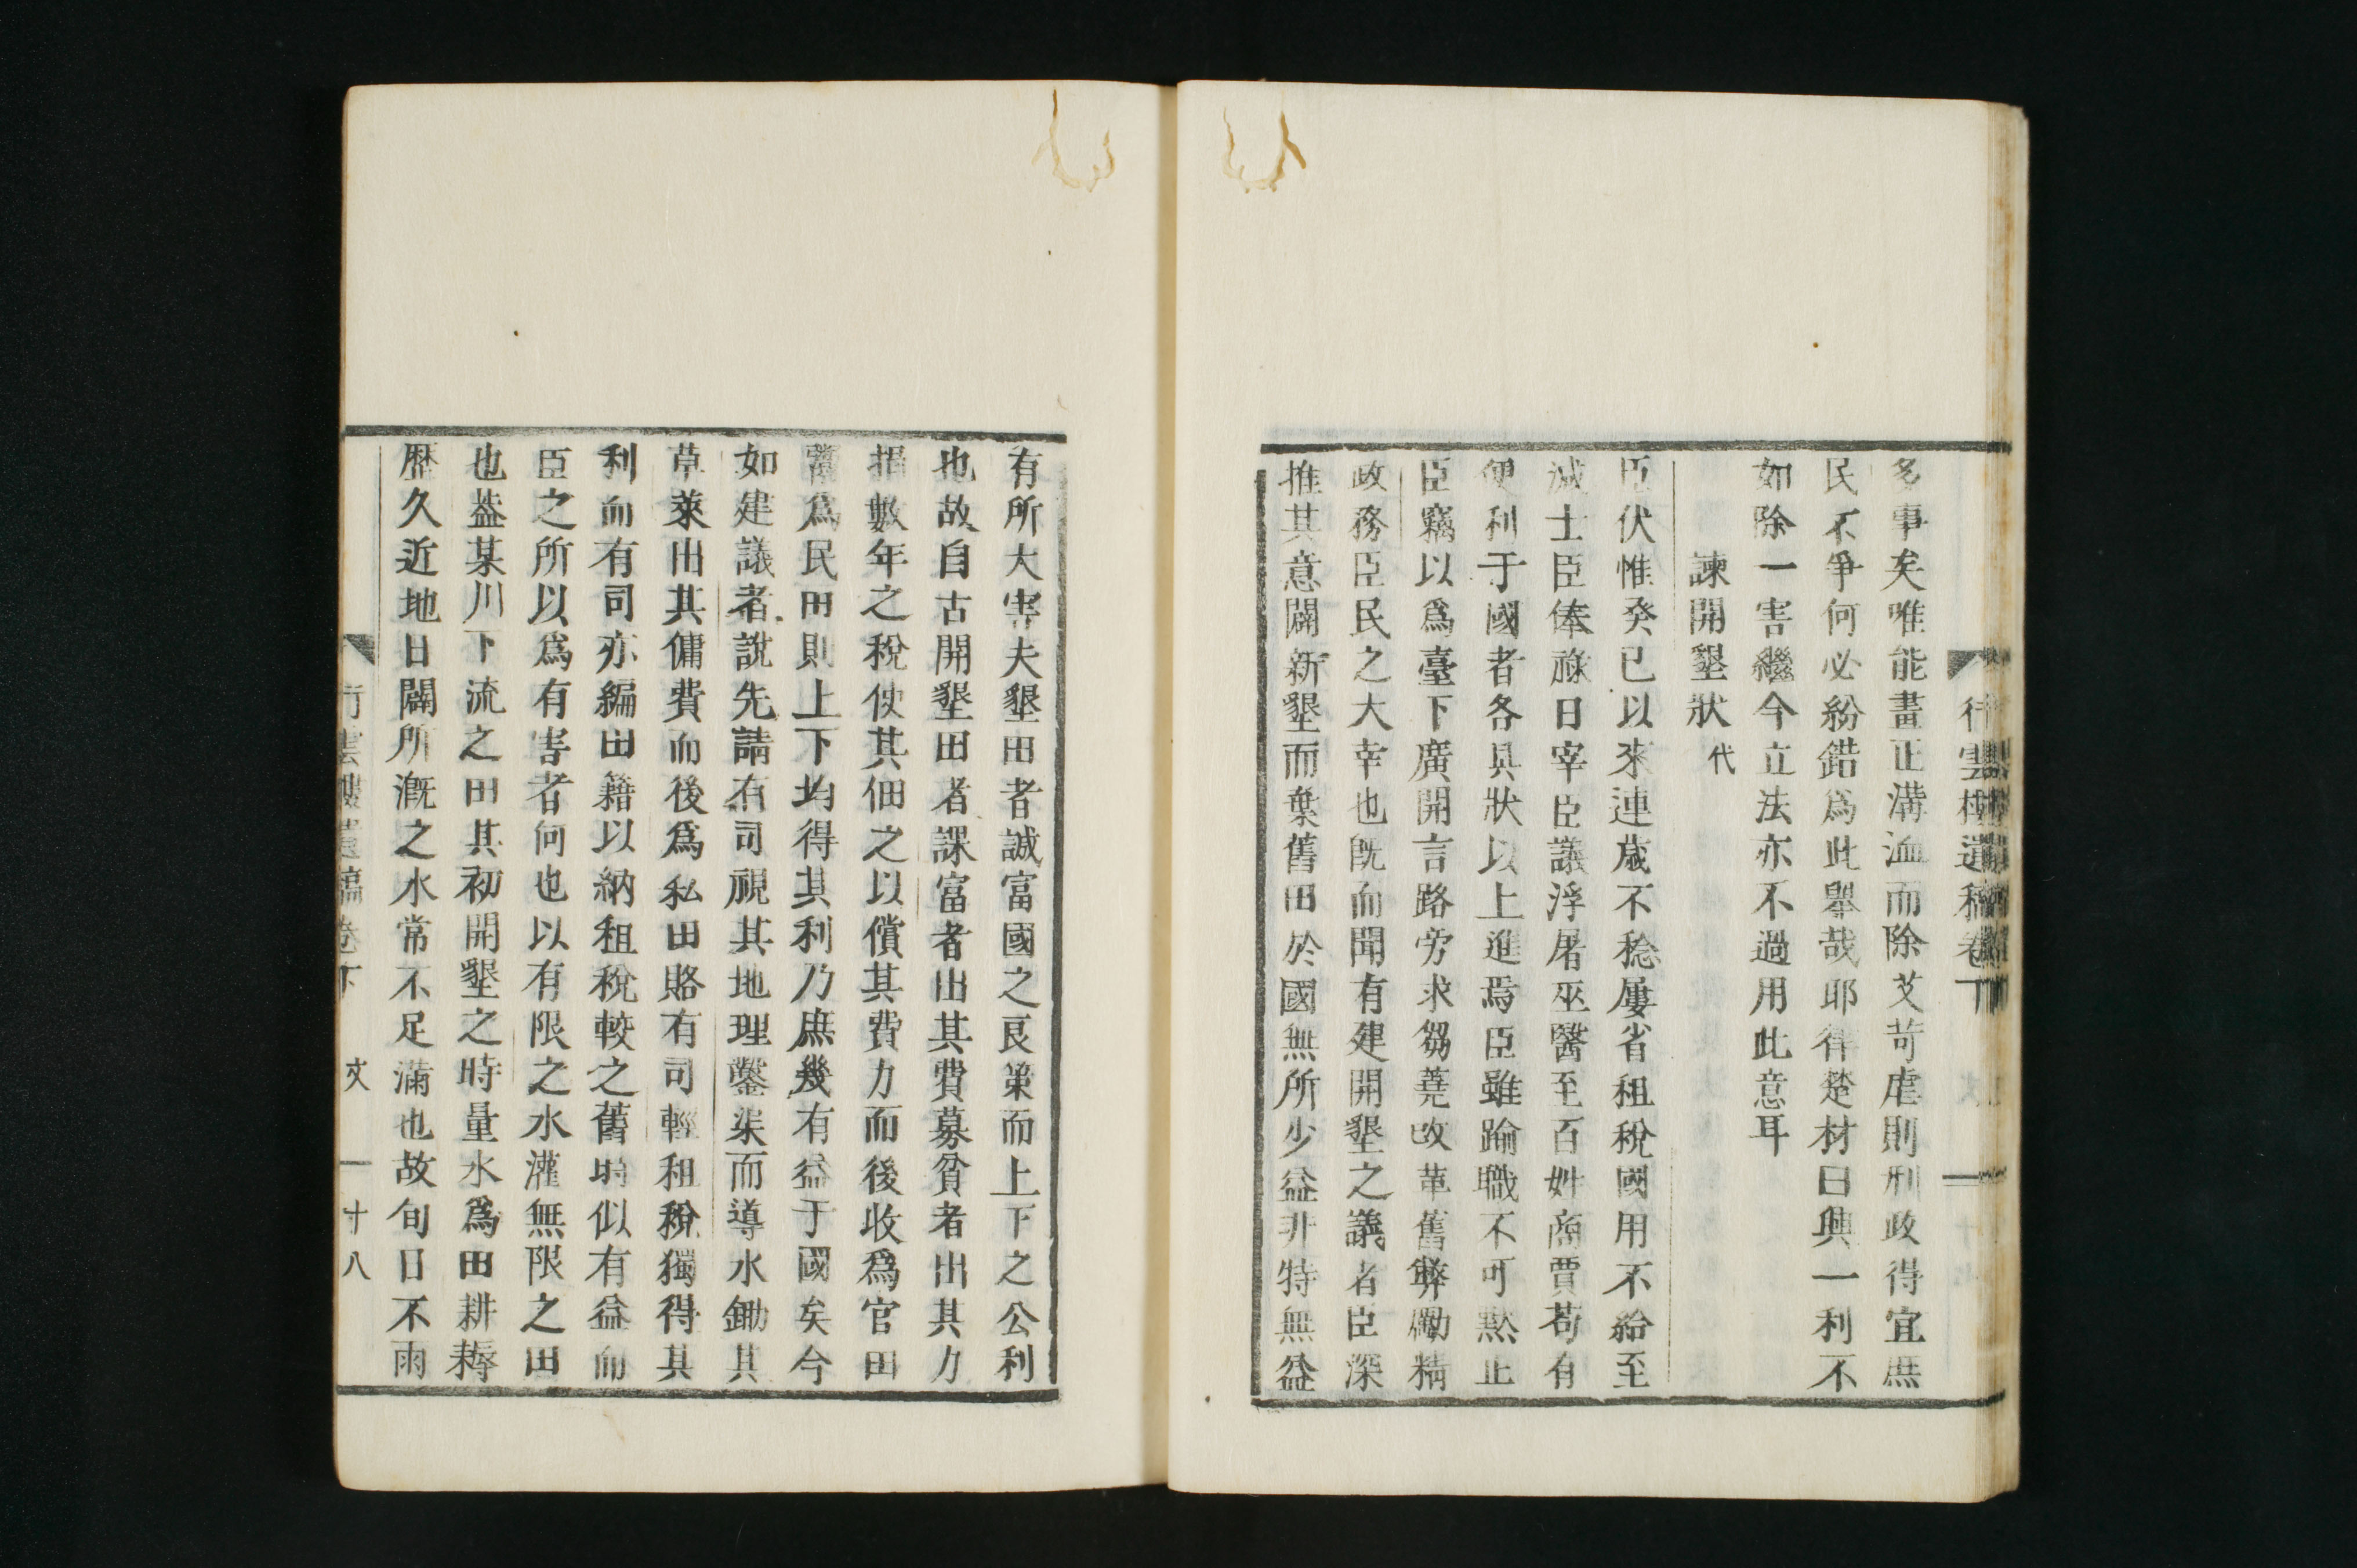 行雲樓遺稿卷下
多事矣唯能畫正溝洫而除艾苛虐則刑政得宜庶
民不爭何必紛錯爲此擧哉耶律楚材曰興一利不
如除一害繼今立法亦不過用此意耳
諫開墾狀 代
臣伏惟癸已以來連歲不稔屢省租稅國用不給至
減士臣俸祿日宰臣議浮屠巫醫至百姓商賈苟有
便利于國者各具狀以上進焉臣雖踰職不可默止
臣竊以爲臺下廣開言路旁求芻蕘改革舊弊勵精
政務臣民之大幸也旣而聞有建開墾之議者臣深
推其意闢新墾而棄舊田於國無所少益非特無益
有所大害夫墾田者誠富國之良策而上下之公利
也故自古開墾田者課富者出其費募貧者出其力
捐數年之稅使其佃之以償其費力而後收爲官田
舊爲民田則上下均得其利乃庶幾有益于國矣今
如建議者說先請有司視其地理鑿渠而導水鋤其
草萊出其傭費而後爲私田賂有司輕租稅獨得其
利而有司亦編田籍以納租稅較之舊時似有益而
臣之所以爲有害者何也以有限之水灌無限之田
也葢某川下流之田其初開墾之時量水爲田耕耨
歷久近地日闢所漑之水常不足滿也故旬日不雨
行雲樓遺稿卷下 文 十八